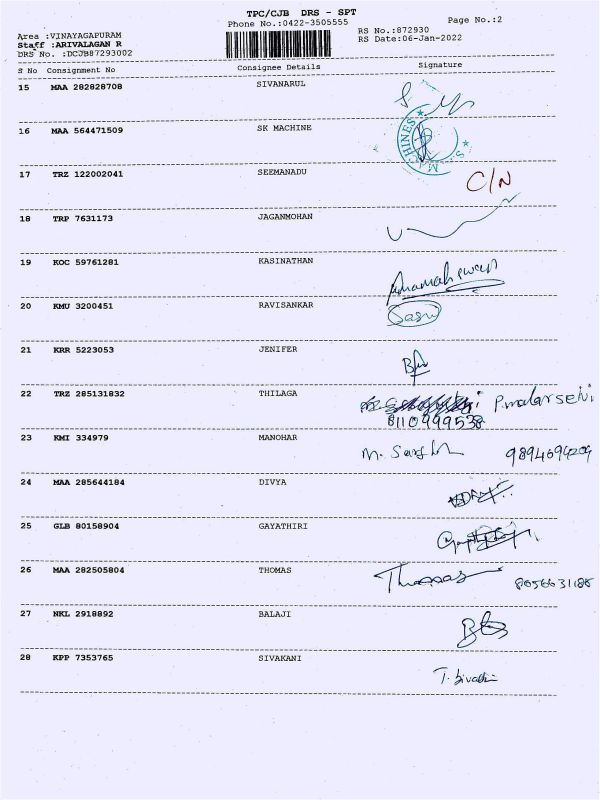 TPC/CJB DRS - SPT
Phone No.:0422-3505555
Page No.:2
Area :VINAYAGAPURAM
Staff :ARIVALAGAN R
DRS No. :DCJB87293002
RS No.:872930
RS Date:06-Jan-2022
S No Consignment No Consignee Details Signature
15 MAA 282828708 SIVANARUL
16 MAA 564471509 SK MACHINE
MACHINES * S
17 TRZ 122002041 SEEMANADU C/N
18 TRP 7631173 JAGANMOHAN
19 KOC 59761281 KASINATHAN
20 KMU 3200451 RAVISANKAR Sasri
21 KRR 5223053 JENIFER
22 TRZ 285131832 THILAGA P.malarselvi
8110999538
23 KMI 334979 MANOHAR 9894694209
24 MAA 285644184 DIVYA
25 GLB 80158904 GAYATHIRI
26 MAA 282505804 THOMAS Thomas 8056631188
27 NKL 2918892 BALAJI
28 KPP 7353765 SIVAKANI